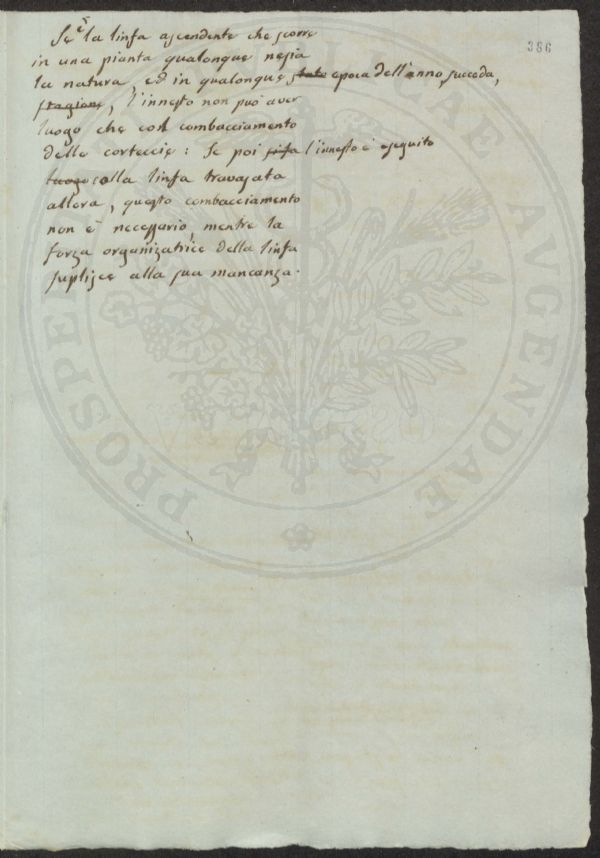 386
Se è la linfa ascendente che scorre
in una pianta qualonque nesia
la natura, ed in qualonque stato epoca dell'anno succeda,
stagione, l'innesto non può aver
luogo che col combacciamento
delle corteccie: Se poi l'innesto è eseguito
luogo colla linfa travasata
allora, questo combacciamento
non è necessario, mentre la
forza organizatrice della linfa
suplisce alla sua mancanza.
PROSPERITATI PUBLICAE AUGENDAE